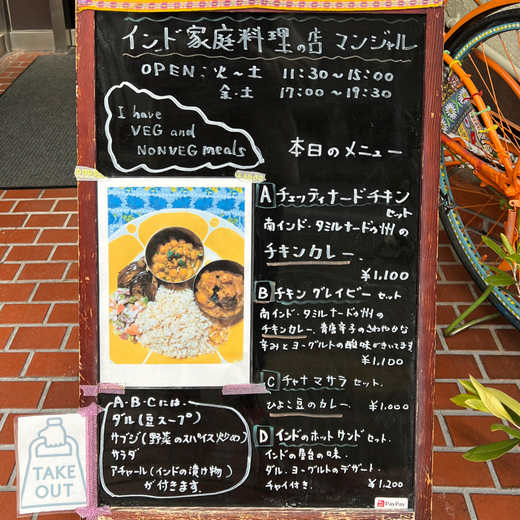 インド家庭料理の店 マンジャル
OPEN: 火~土 11:30~15:00
金・土 17:00~19:30
I have
VEG and
NONVEG meals
本日のメニュー
A チェッティナードチキン
セット
南インド・タミルナードゥ州の
チキンカレー.
¥1,100
B チキン グレイビー セット
南インド・タミルナードゥ州の
チキンカレー、青唐辛子のさわやかな
辛みとヨーグルトの酸味がきいてます
¥1,100
C チャナマサラ セット.
ひよこ豆のカレー.
¥1,000
D インドのホットサンドセット.
インドの屋台の味.
ダル.ヨーグルトのデザート.
チャイ付き.
¥1,200
A・B・Cには.
ダル(豆スープ)
サブジ(野菜のスパイス炒め)
サラダ
アチャール(インドの漬け物)
が付きます.
TAKE
OUT
PayPay